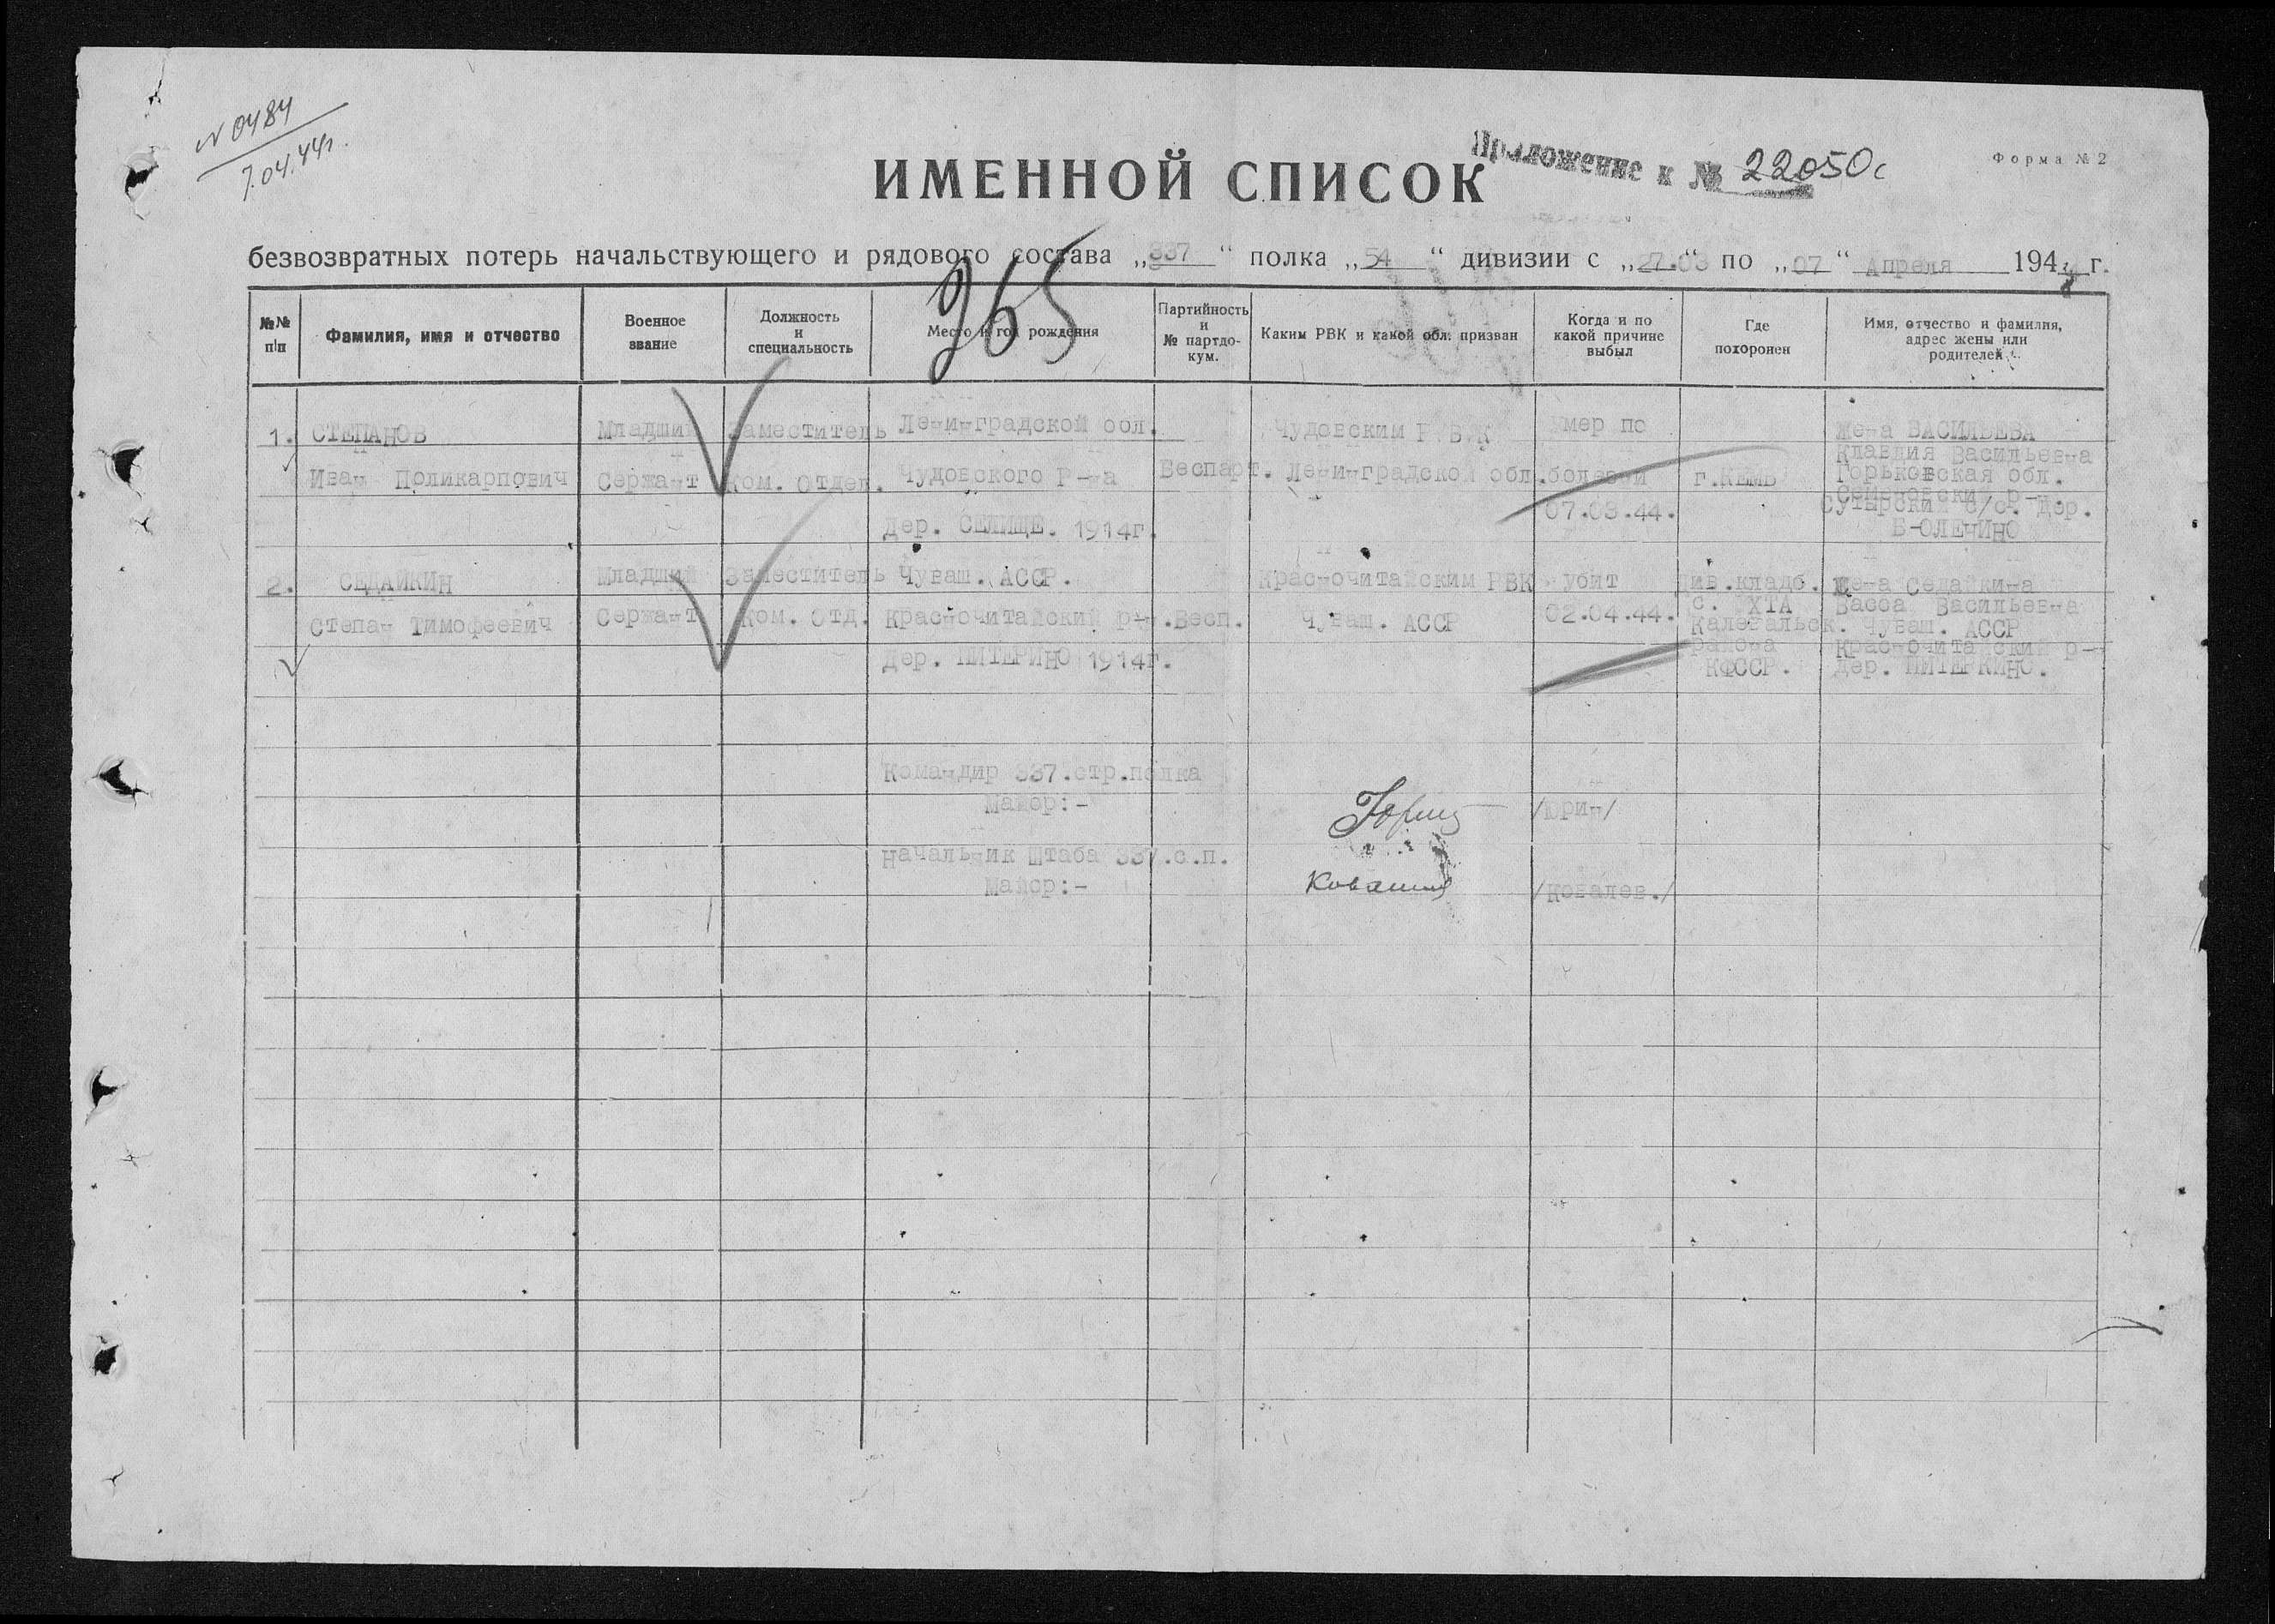 N 0484
7.04.44г.
Приложение к № 22050с
Форма № 2
ИМЕННОЙ СПИСОК
безвозвратных потерь начальствующего и рядового состава „337“ полка „54“ дивизии с „27.03“ по „07“ Апреля 1944 г.
365
№№ п/п
Фамилия, имя и отчество
Военное звание
Должность и специальность
Место и год рождения
Партийность и № партдокум.
Каким РВК и какой обл. призван
Когда и по какой причине выбыл
Где похоронен
Имя, отчество и фамилия, адрес жены или родителей
1.
СТЕПАНОВ
Иван Поликарпович
Младший
Сержант
Заместитель
Ком. Отдел.
Ленинградской обл.
Чудовского Р-на
дер. СЕЛИЩЕ. 1914г.
Беспарт.
Чудовским Р В К
Ленинградской обл.
Умер по
болезни
07.03.44.
г. КЕМЬ
Жена ВАСИЛЬЕВА
Клавдия Васильевна
Горьковская обл.
Семеновский р-н.
Сутырский с/с. Дер.
Б-ОЛЕНИНО
2.
СЕДАЙКИН
Степан Тимофеевич
Младший
Сержант
Заместитель
Ком. Отд.
Чуваш. АССР.
Красночитайский р-н.
дер. ПИТЕРИНО 1914г.
Бесп.
Красночитайским РВК
Чуваш. АССР
убит
02.04.44.
Див.кладб.
с. УХТА
Калевальск.
района
КФССР.
Жена Седайкина
Васса Васильевна
Чуваш. АССР
Красночитайский р-н
дер. ПИТЕРКИНО.
Командир 337.стр.полка
Майор:-
/Юрин/
Начальник Штаба 337.с.п.
Майор:-
/Ковалев./